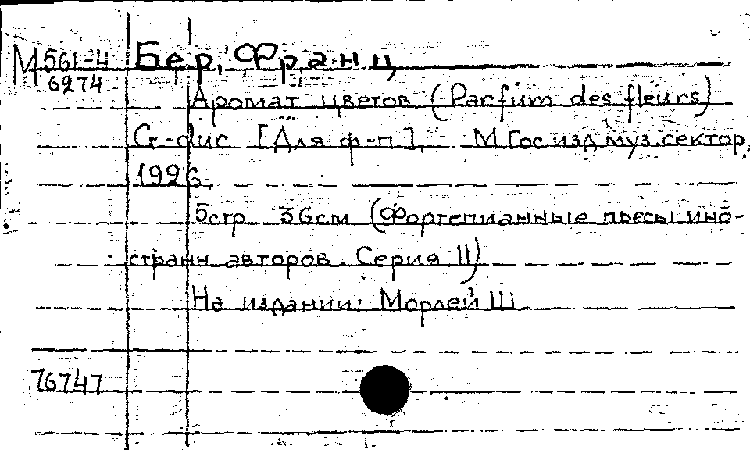 М 561-4 Бер, Франц
6274
Аромат цветов (Parfum des fleurs)
G-dur [Для ф-п]. М Гос. изд. муз. сектор,
1926.
5 стр 36 см (Фортепианные пьесы ино-
странн авторов. Серия II)
На издании: Морлей Ш
76747